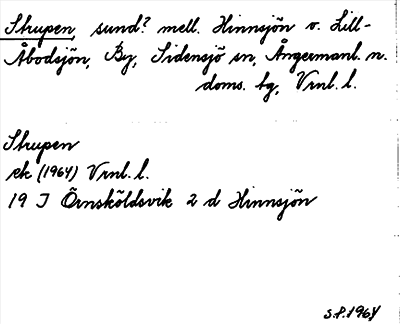 Strupen, sund? mell. Hinnsjön o. Lill-
Åbodsjön, By, Sidensjö sn, Ångermanl. n.
doms. tg, Vrnl. l.
Strupen
ek (1964) Vrnl. l.
19 J Örnsköldsvik 2 d Hinnsjön
S.P. 1964